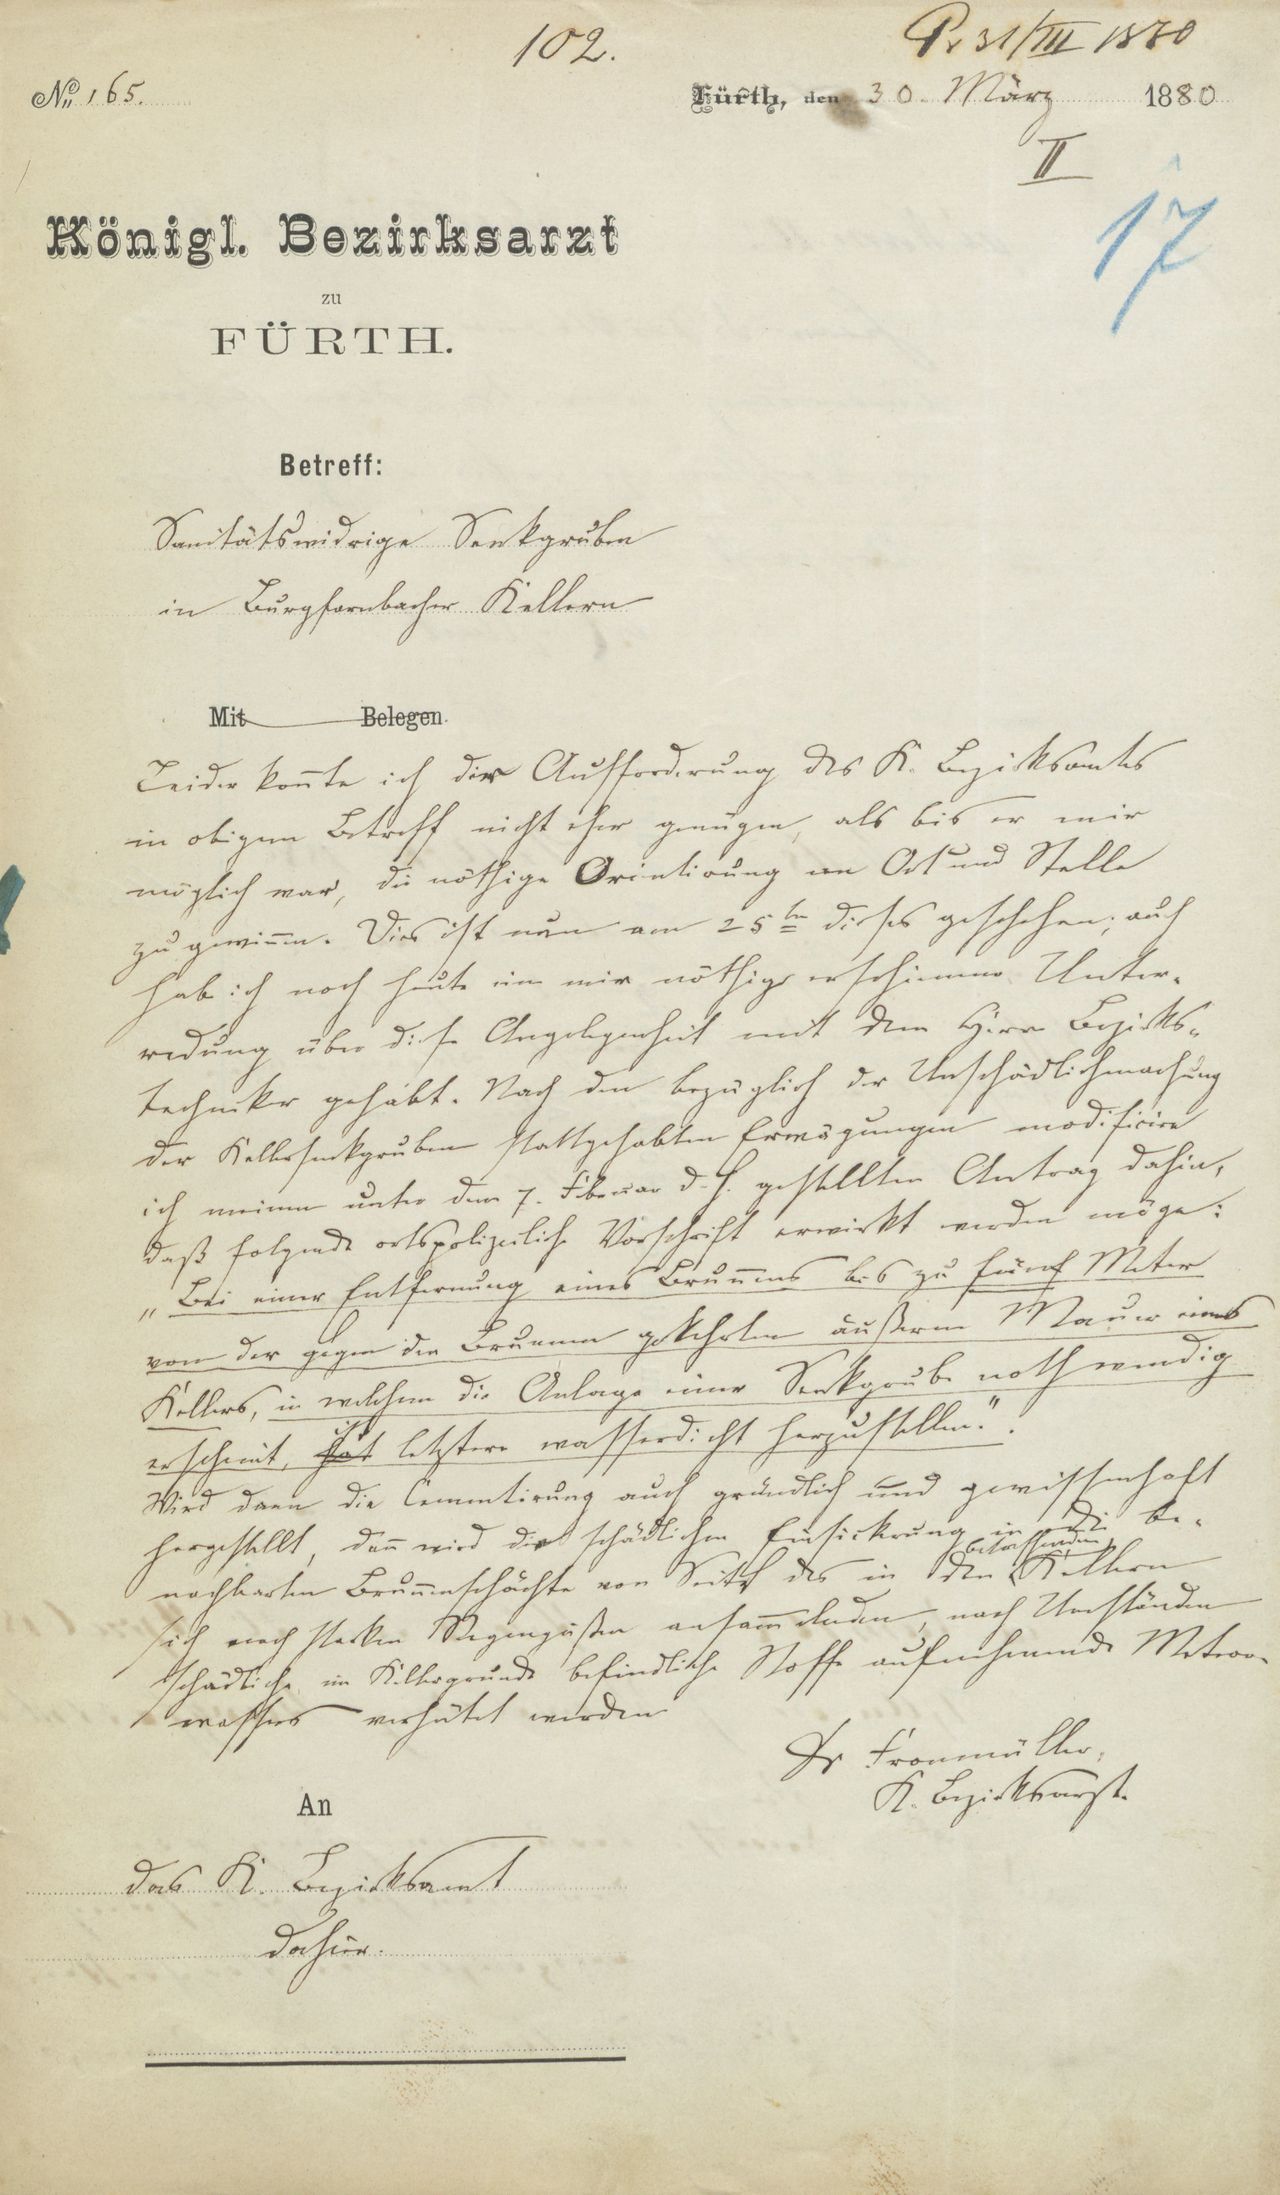 102.
Pr 31/III 1880
No 165.
Fürth, den 30. März 1880
II
17
Königl. Bezirksarzt
zu
FÜRTH.
Betreff:
Sanitätswidrige Senkgruben
in Burgfarnbacher Kellern
Mit Belegen.
Leider konnte ich der Aufforderung des K. Bezirksamtes
in obigem Betreff nicht eher genügen, als bis er mir
möglich war, die nöthige Orientirung an Ort und Stelle
zu gewinnen. Dies ist nun am 25ten dieses geschehen; auch
hab ich noch heute eine mir nöthig erschienene Unter-
redung über diese Angelegenheit mit dem Herrn Bezirks-
techniker gehabt. Nach den bezüglich der Unschädlichmachung
der Kellersenkgruben stattgehabten Erwägungen modificire
ich meinen unter dem 7. Februar d. J. gestellten Antrag dahin,
daß folgende ortspolizeiliche Vorschrift erwirkt werden möge:
„Bei einer Entfernung eines Brunnens bis zu fünf Meter
von der gegen den Brunnen gekehrten äußeren Mauer eines
Kellers, in welchem die Anlage einer Senkgrube nothwendig
erscheint, hat ist letztere wasserdicht herzustellen.“
Wird dann die Cementirung auch gründlich und gewissenhaft
hergestellt, dann wird die schädliche Einsickerung in die be-
nachbarten Brunnenschächte von Seite des in den betreffenden Kellern
sich nach starken Regengüßen ansammelnden, nach Umständen
schädliche im Kellergrunde befindliche Stoffe aufnehmende Meteor-
wassers verhütet werden
Dr Fronmüller,
K. Bezirksarzt.
An
das K. Bezirksamt
dahier.